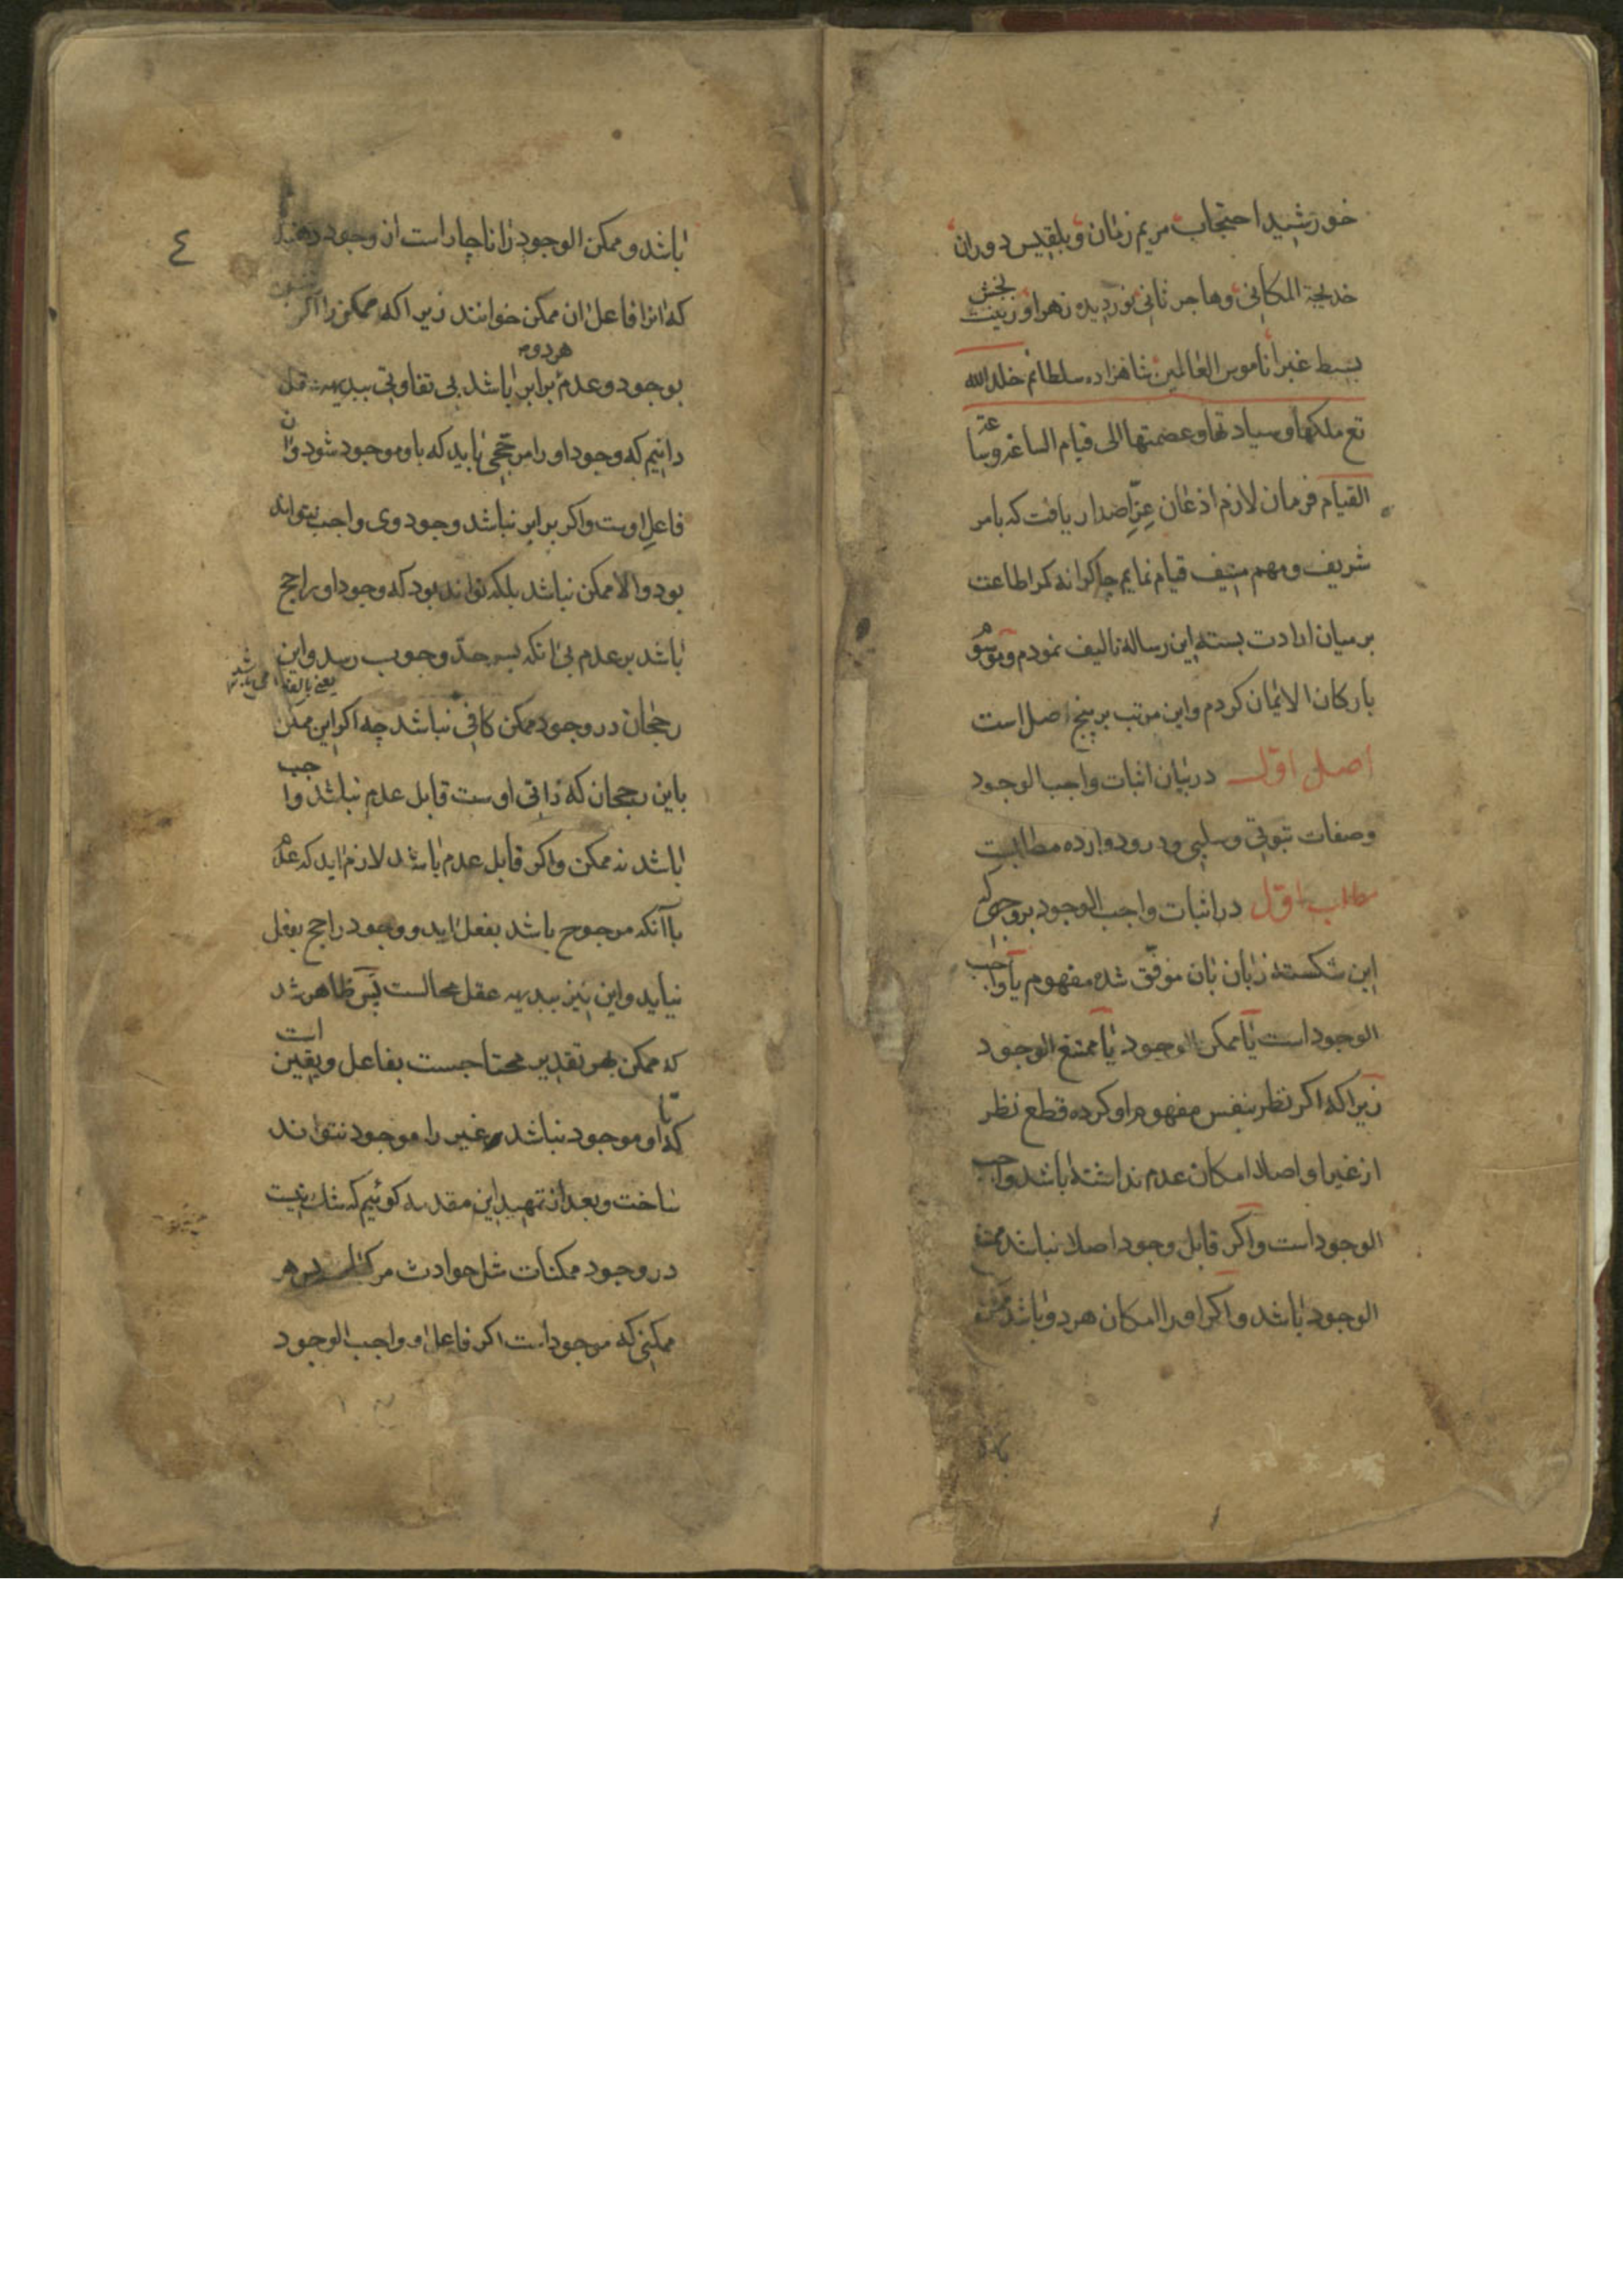 خورشید احتجاب مریم زمان و بلقیس دوران
خدیجة المکانی و هاجر ثانی نور دیده زهرا و زینت بخش
بسیط غبرا ناموس العالمین شاهزاده سلطانم خلد الله
تع ملکها و سیادتها و عصمتها الی قیام الساعة و ساعة
القیام فرمان لازم اذعان عزّ اصدار یافت که بامر
شریف و مهم منیف قیام نمایم چاکرانه کمر اطاعت
بر میان ارادت بسته این رساله تالیف نمودم و موسوم
بارکان الایمان کردم و این مرتب بر پنج اصل است
اصل اول در بیان اثبات واجب الوجود
وصفات ثبوتی و سلبی و درو دوازده مطلبست
مطلب اول در اثبات واجب الوجود بر وجهی که
این شکسته زبان بان موفّق شده مفهوم یا واجب
الوجود است یا ممکن الوجود یا ممتنع الوجود
زیرا که اکر نظر بنفس مفهوم او کرده قطع نظر
از غیر او اصلا امکان عدم نداشته باشد واجب
الوجود است و اکر قابل وجود اصلا نباشد ممتنع
الوجود باشد و اکر او را امکان هر دو باشد ممکن
٤
باشد و ممکن الوجود را ناچار است از وجود دهنده
که انرا فاعل ان ممکن خوانند زیرا که ممکن را اکر
هر دو
بوجود و عدم برابر باشد بی تفاوتی ببدیهه عقل
دانیم که وجود او را مرجّحی باید که باو موجود شود و ان
فاعل اوست و اکر برابر نباشد وجود وی واجب نتواند
بود والا ممکن نباشد بلکه تواند بود که وجود او راجح
باشد بر عدم بی انکه بسر حدّ وجوب رسد و این
رجحان در وجود ممکن کافی نباشد چه اکر این ممکن
باین رجحان که ذاتی اوست قابل عدم نباشد واجب
باشد نه ممکن و اکر قابل عدم باشد لازم اید که عدم
با آنکه مرجوح باشد بفعل اید و وجود راجح بفعل
نیاید و این نیز ببدیهه عقل محالست پس ظاهر شد
که ممکن بهر تقدیر محتاجست بفاعل و یقین است
که تا او موجود نباشد غیر را موجود نتواند
ساخت و بعد از تمهید این مقدمه کوئیم که شک نیست
در وجود ممکنات مثل حوادث مرکبات پس هر
ممکنی که موجود است اکر فاعل او واجب الوجود